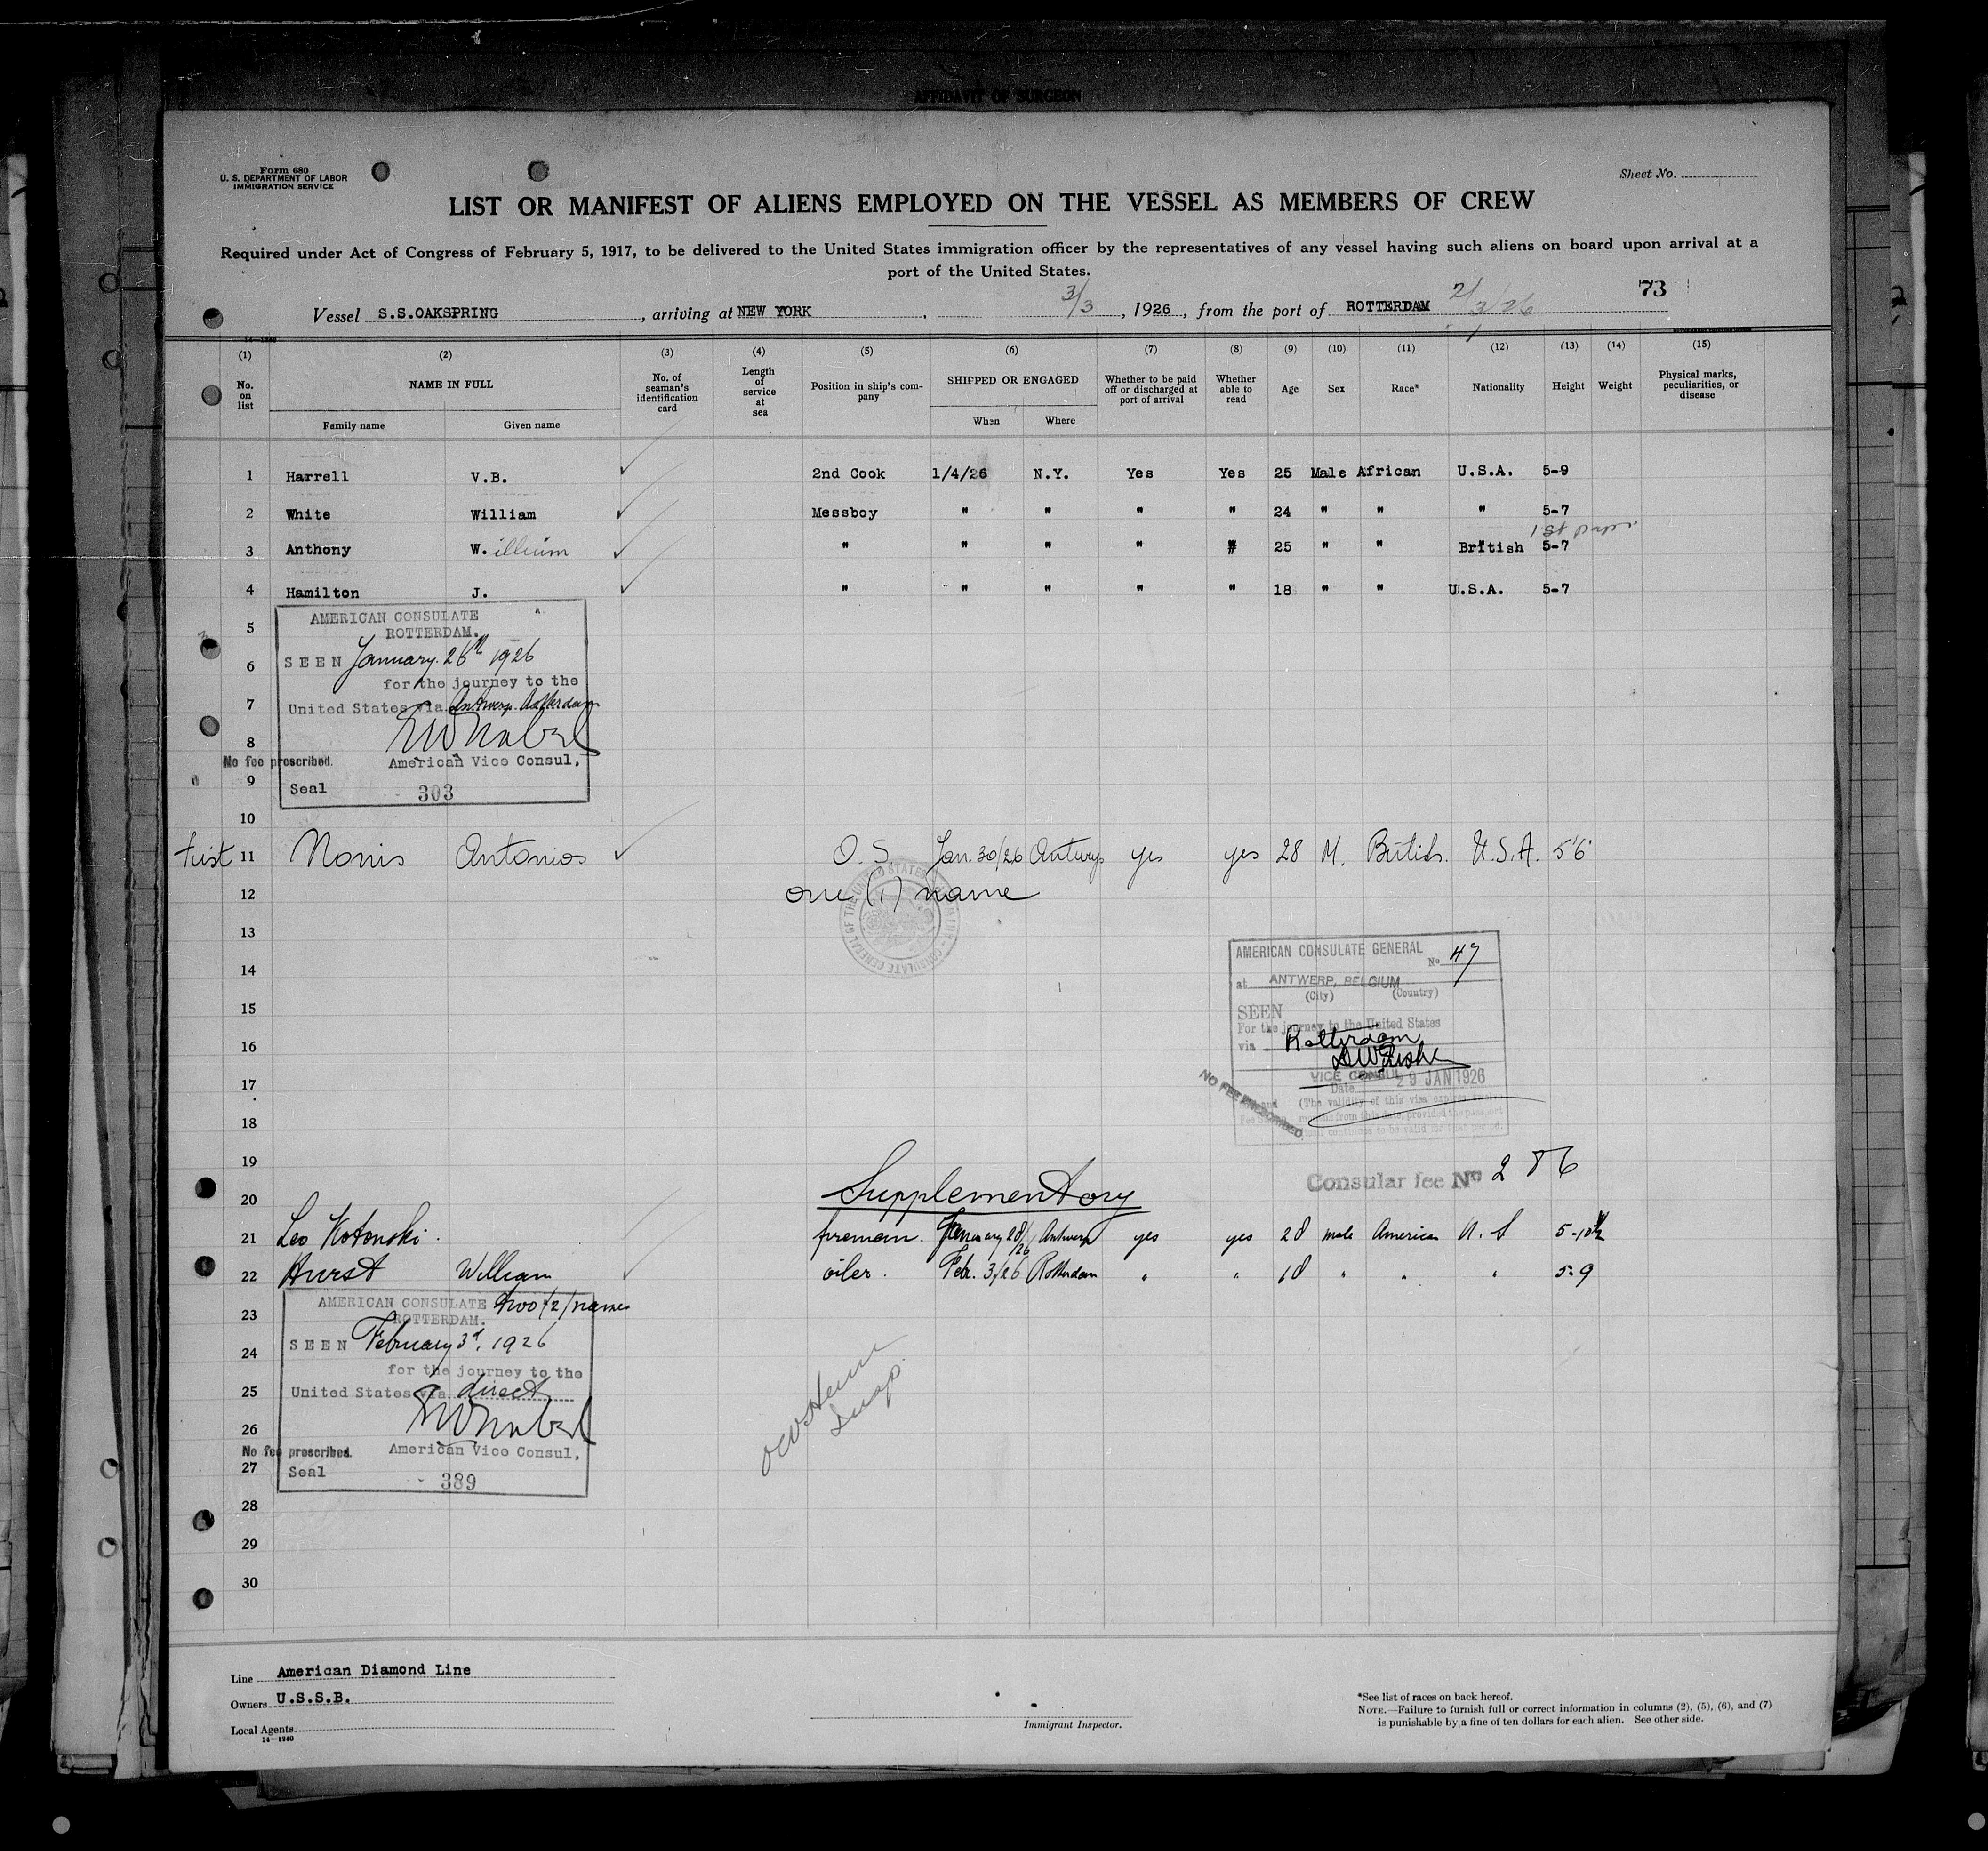 AFFIDAVIT OF SURGEON
Form 680
U. S. DEPARTMENT OF LABOR
IMMIGRATION SERVICE
Sheet No.
LIST OR MANIFEST OF ALIENS EMPLOYED ON THE VESSEL AS MEMBERS OF CREW
Required under Act of Congress of February 5, 1917, to be delivered to the United States immigration officer by the representatives of any vessel having such aliens on board upon arrival at a
port of the United States.
73
Vessel S.S.OAKSPRING, arriving at NEW YORK, 3/3, 1926, from the port of ROTTERDAM 2/3/26
14-1240
(1) (2) (3) (4) (5) (6) (7) (8) (9) (10) (11) (12) (13) (14) (15)
No. on list NAME IN FULL Family name Given name No. of seaman's identification card Length of service at sea Position in ship's company SHIPPED OR ENGAGED When Where Whether to be paid off or discharged at port of arrival Whether able to read Age Sex Race* Nationality Height Weight Physical marks, peculiarities, or disease
1 Harrell V.B. 2nd Cook 1/4/26 N.Y. Yes Yes 25 Male African U.S.A. 5-9
2 White William Messboy " " " " 24 " " " 5-7
1st paper
3 Anthony W. illium " " " " " 25 " " British 5-7
4 Hamilton J. " " " " " 18 " " U.S.A. 5-7
AMERICAN CONSULATE
5 ROTTERDAM.
6 SEEN January 26th 1926
for the journey to the
7 United States via Antwerp. Rotterdam
8
No fee prescribed. American Vice Consul,
9 Seal 303
10
11 Antonios O.S. Jan. 30/26 Antwerp yes yes 28 M. British. U.S.A. 5'6"
12 one (1) name
13
AMERICAN CONSULATE GENERAL No. 47
14
at ANTWERP, BELGIUM
(City) (Country)
15 SEEN
For the journey to the United States
16 via Rotterdam
17 VICE CONSUL
Date 29 JAN 1926
NO FEE PRESCRIBED
(The validity of this visa expires
months from this date, provided the passport
18 continues to be valid for that period.
19
Consular fee No 286
20 Supplementory
21 Leo Kotonski. fireman. January 28/26 Antwerp yes yes 28 male American U.S 5-10½
22 Hurst William oiler. Feb. 3/26 Rotterdam " " 18 " " " 5-9
AMERICAN CONSULATE two (2) names
23 ROTTERDAM.
24 SEEN February 3d, 1926
for the journey to the
25 United States via direct
26
No fee prescribed. American Vice Consul,
27 Seal 389
Insp.
28
29
30
Line American Diamond Line
Owners U.S.S.B.
Local Agents
14-1240
Immigrant Inspector.
*See list of races on back hereof.
NOTE.—Failure to furnish full or correct information in columns (2), (5), (6), and (7)
is punishable by a fine of ten dollars for each alien. See other side.